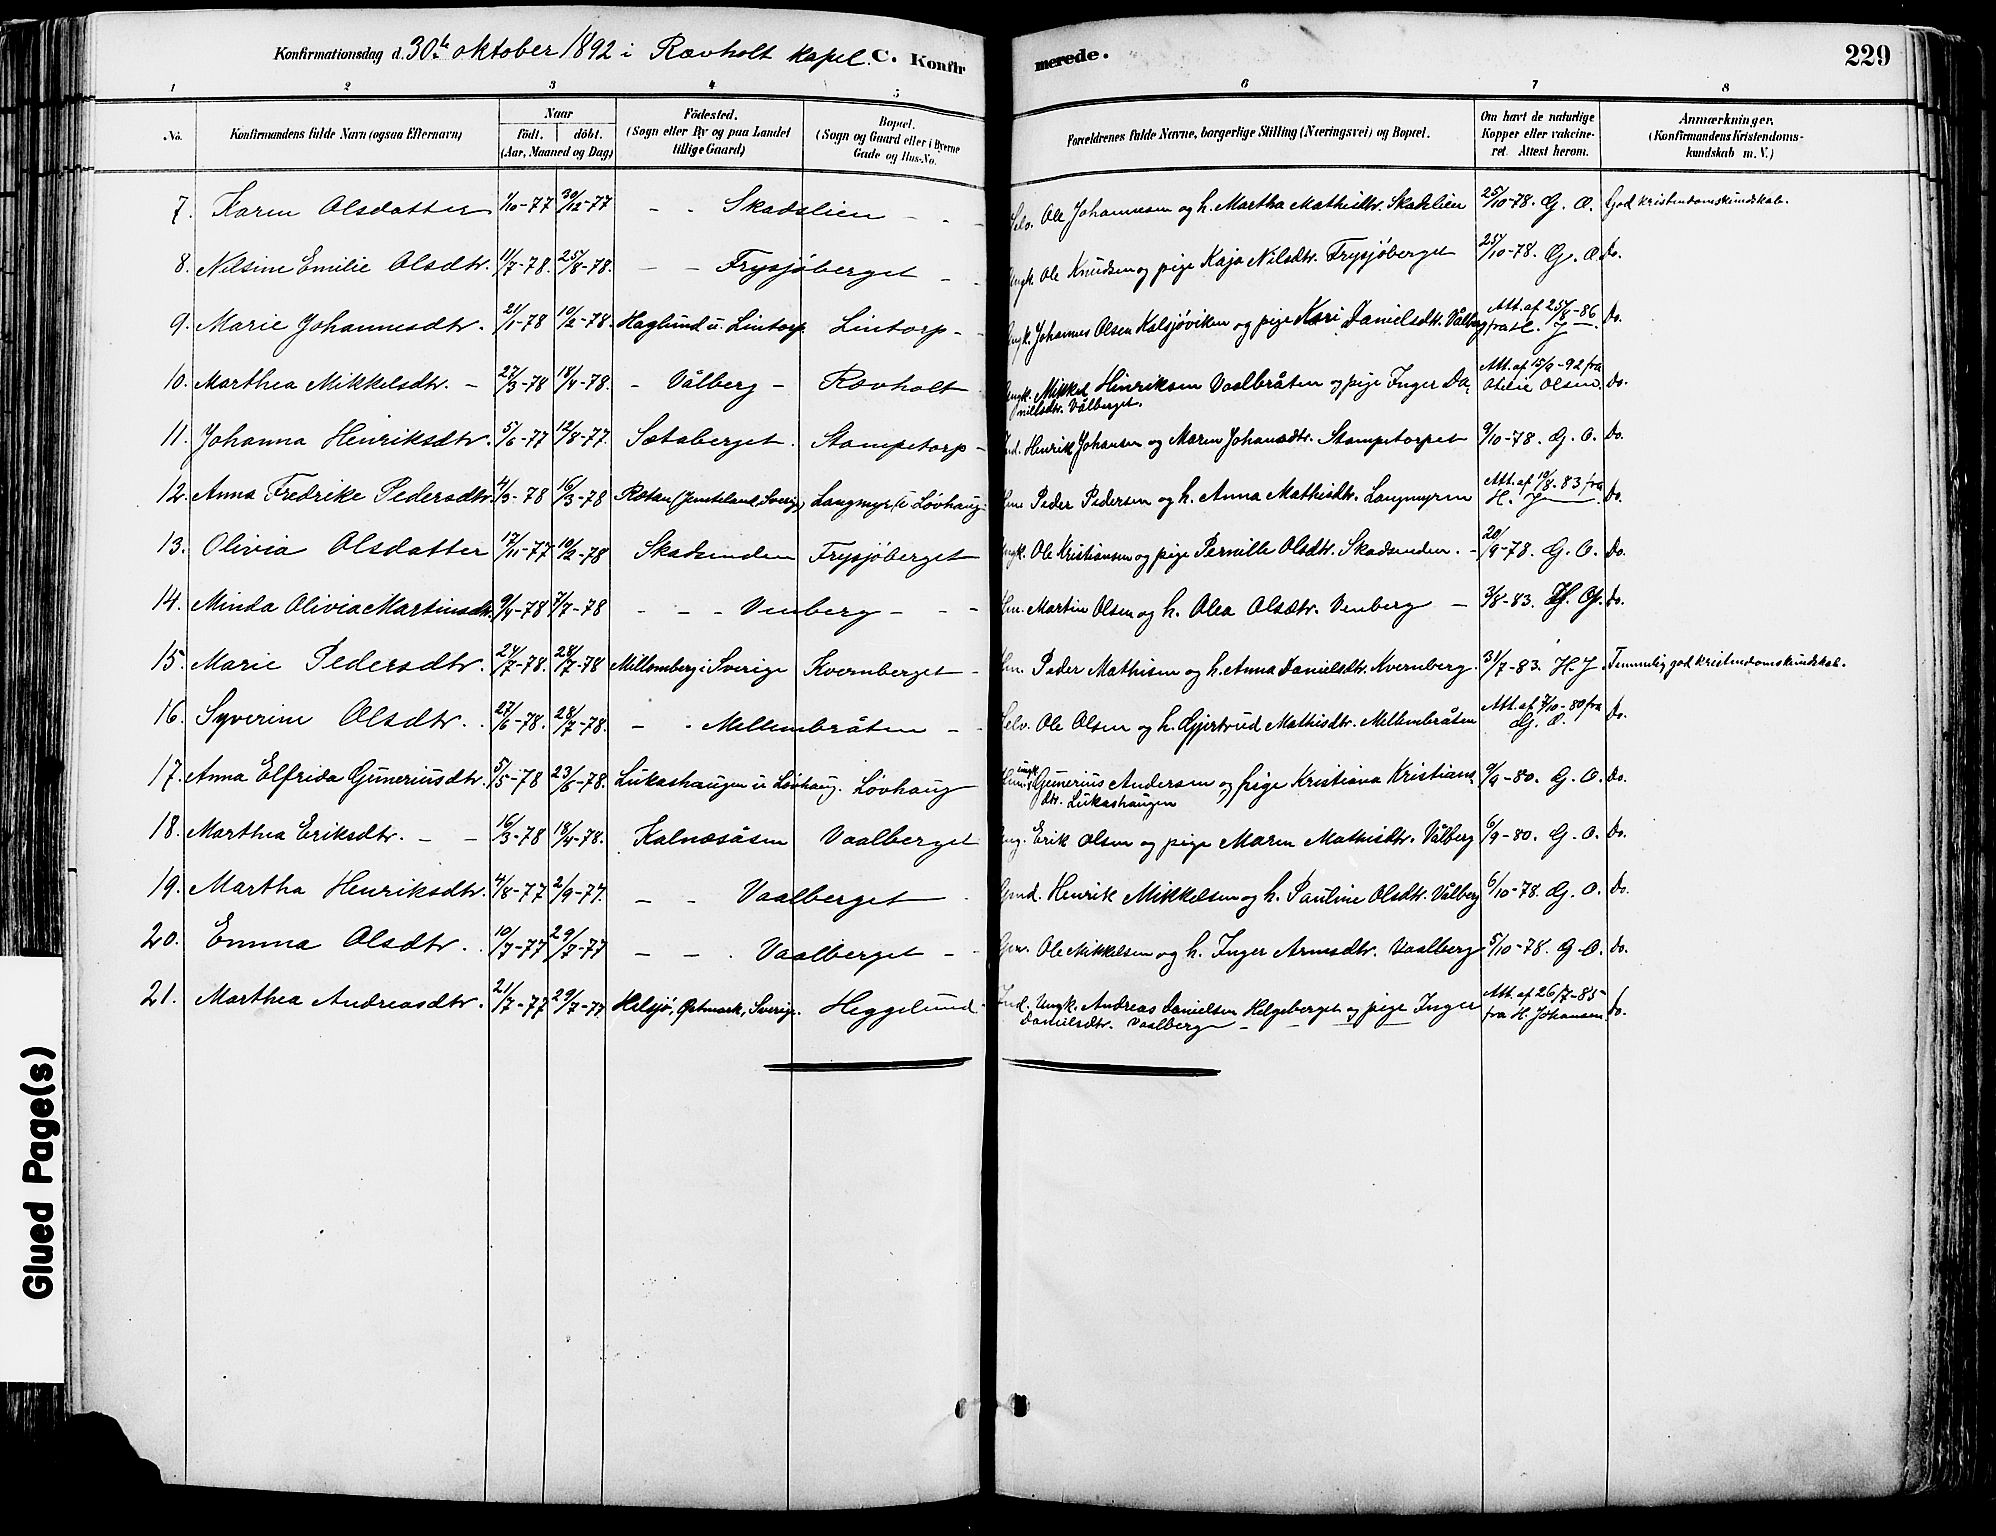 Konfirmationsdag d. 30te oktober 1892 i Rævholt kapel. C. Konfir
merede. 229
1 2 3 4 5 6 7 8
No. Konfirmandens fulde Navn (ogsaa Efternavn) Naar födt. döbt. (Aar, Maaned og Dag) Födested. (Sogn eller By og paa Landet tillige Gaard) Bopæl. (Sogn og Gaard eller i Byerne Gade og Hus-No. Forældrenes fulde Navne, borgerlige Stilling (Næringsvei) og Bopæl. Om havt de naturlige Kopper eller vakcineret. Attest herom. Anmærkninger. (Konfirmandens Kristendomskundskab m. V.)
7. Karen Olsdatter 1/10-77 30/12-77 - - Skadslien - - Selv. Ole Johannesen og h. Martha Mathisdtr. Skadslien 25/10-78. G. O. God kristendomskundskab.
8. Nilsine Emilie Olsdtr. 11/7-78. 25/8-78. - - Frysjöberget - - Ungk. Ole Knudsen og pige Kaja Nilsdtr. Frysjöberget 25/10-78. G. O. Do.
9. Marie Johannesdtr. 21/1-78 10/2-78. Haglund u. Lintorp Lintorp - - Ungk. Johannes Olsen Kalsjöviken og pige Kari Danielsdtr. Vålberg Att. af 25/8-86 fra H. J Do.
10. Marthea Mikkelsdtr. - 27/3-78 18/4-78. - Vålberg - Rævholt Ungk. Mikkel Henriksen Vaalbråten og pige Inger Da-
nielsdtr. Vålberget. Att. af 15/9-92 fra Otelie Olsen. Do.
11. Johanna Henriksdtr. 5/6-77 12/8-77. Sætaberget. Stampetorp - Ind. Henrik Johansen og Maren Johansdtr. Stampetorpet 9/10-78. G. O. Do.
12. Anna Fredrike Pedersdtr. 4/3-78 16/3-78 Rotan (Jemteland, Sverig.) Langmyr u Lövhaug. Peder Pedersen og h. Anna Mathisdtr. Langmyren Att. af 10/8-83 fra H. J Do.
13. Olivia Olsdatter 17/11-77 10/2-78 Skadsenden Frysjöberget Ungk. Ole Kristiansen og pige Pernille Olsdtr. Skadsenden. - 20/9-78. G. O. Do.
14. Minda Olivia Martinsdtr. 9/4-78 7/7-78 - - - Venberg - - - Martin Olsen og h. Olea Olsdtr. Venberg - 3/8-83. Do.
15. Marie Pedersdtr. 24/7-78. 28/7-78 Millomberg i Sverige Kvernberget - Peder Mathisen og h. Anna Danielsdtr. Kvernberg. 31/7-83. H. J. Temmelig god kristendomskundskab.
16. Syverine Olsdtr. 27/6-78. 28/7-78. - - Mellembråten - - Selv. Ole Olsen og h. Gjertrud Mathisdtr. Mellembråten Att. af 7/10-80 fra G. O. Do.
17. Anna Elfrida Guneriusdtr. 5/5-78 23/6-78. Lukashaugen u Lövhaug. Lövhaug ungk. Gunerius Andersen og pige Kristiana Kristians-
dtr. Lukashaugen 9/9-80. G. O. Do.
18. Marthea Eriksdtr. - - 16/3-78 18/4-78. Kalnæsåsen Vaalberget Ung. Erik Olsen og pige Maren Mathisdtr. Vålberg 6/9-80. G. O. Do.
19. Martha Henriksdtr. 4/8-77 2/9-77. - - Vaalberget Gmd. Henrik Mikkelsen og h. Pauline Olsdtr. Vålberg 6/10-78. G. O. Do.
20. Emma Olsdtr. 10/7-77 29/7-77 - - . Vaalberget - - Ole Mikkelsen og h. Inger Arnesdtr. Vaalberg 5/10-78. G. O. Do.
21. Marthea Andreasdtr. 21/7-77 29/7-77 Helsjö, Östmark, Sverige. Heggelund Ind. Ungk. Andreas Danielsen Helgeberget og pige Inger
Danielsdtr. Vaalberg Att. af 26/7-85 fra H. Johansen. Do.
Glued Page(s)